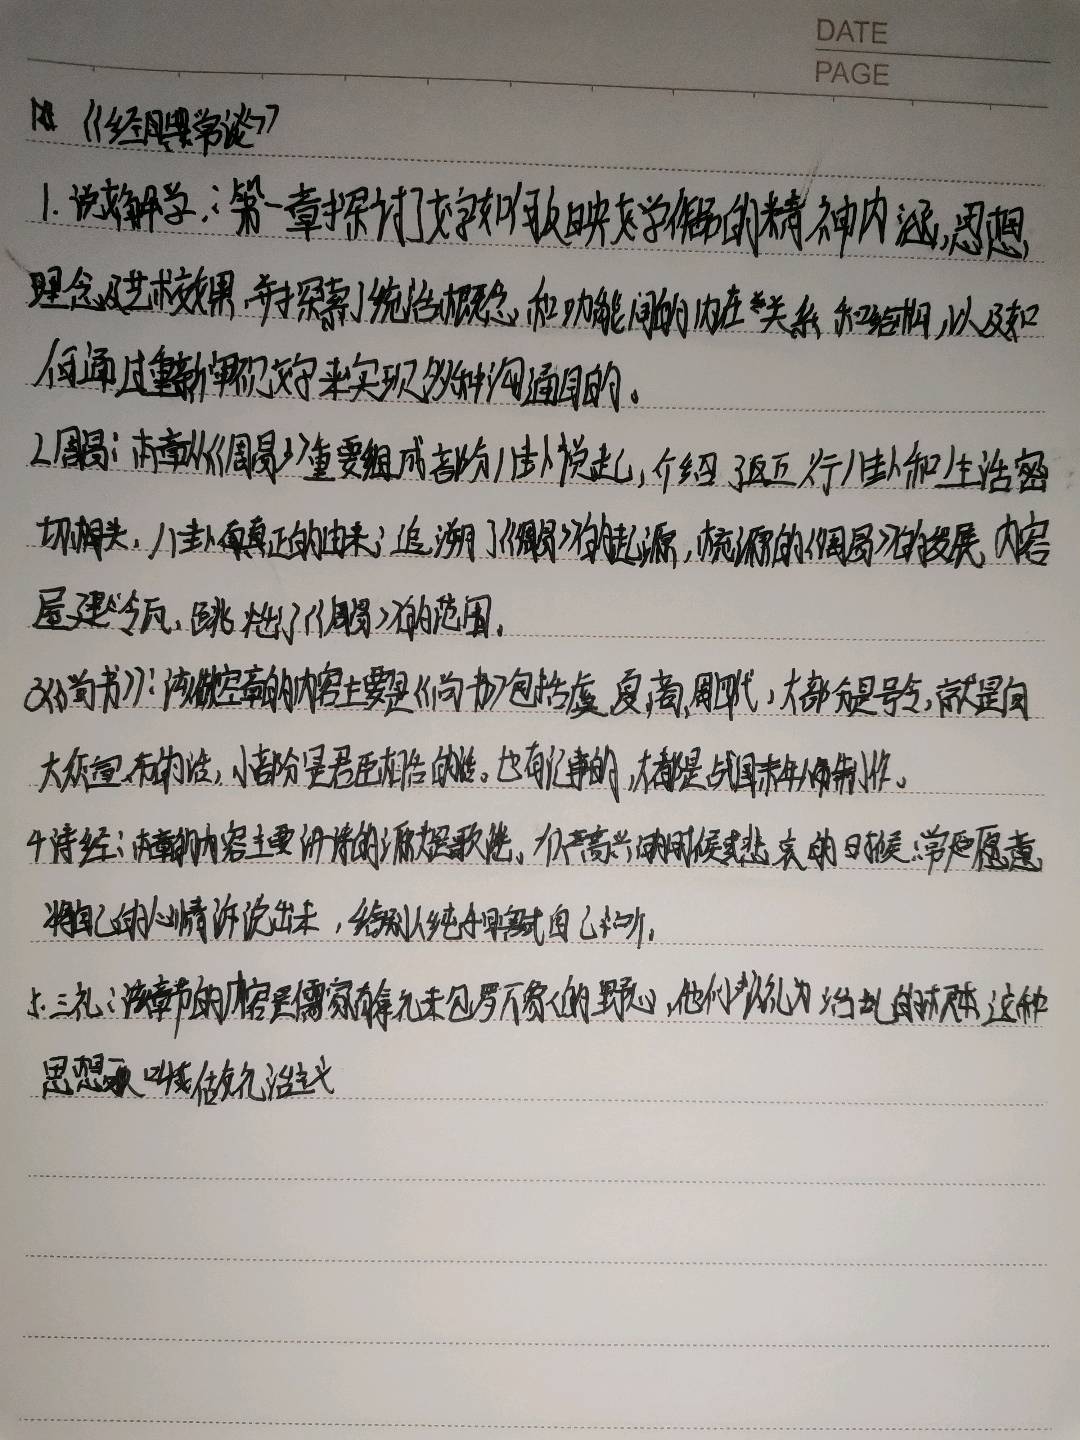 DATE
PAGE
《经典常谈》
1. 说文解字：第一章探讨了文字如何反映文学作品的精神内涵，思想
理念及艺术效果，并探索了统治概念，和功能间的内在关系和结构，以及如
何通过重新审视文字来实现多种沟通目的。
2周易：本章从《周易》重要组成部分八卦说起，介绍了八卦和生活密
切相关，八卦真正的由来；追溯了《周易》的起源，梳源的《周易》的发展，内容
，跳出了《周易》的范围。
3《尚书》：该章的内容主要是《尚书》包括虞，夏，商，周四代，大部分是号令，就是向
大众宣布的话，小部分是君臣相告的话。也有记事的，大都是战国末年人的制作。
4诗经：本章的内容主要讲诗的源起是歌谣，在高兴的时候或悲哀的时候，常愿意
将自己的心情诉说出来，给别人自己听。
5.三礼：该章节的内容是儒家有拿礼来包罗万象的野心，他们认礼为治乱的根本，这种
思想叫做礼治主义